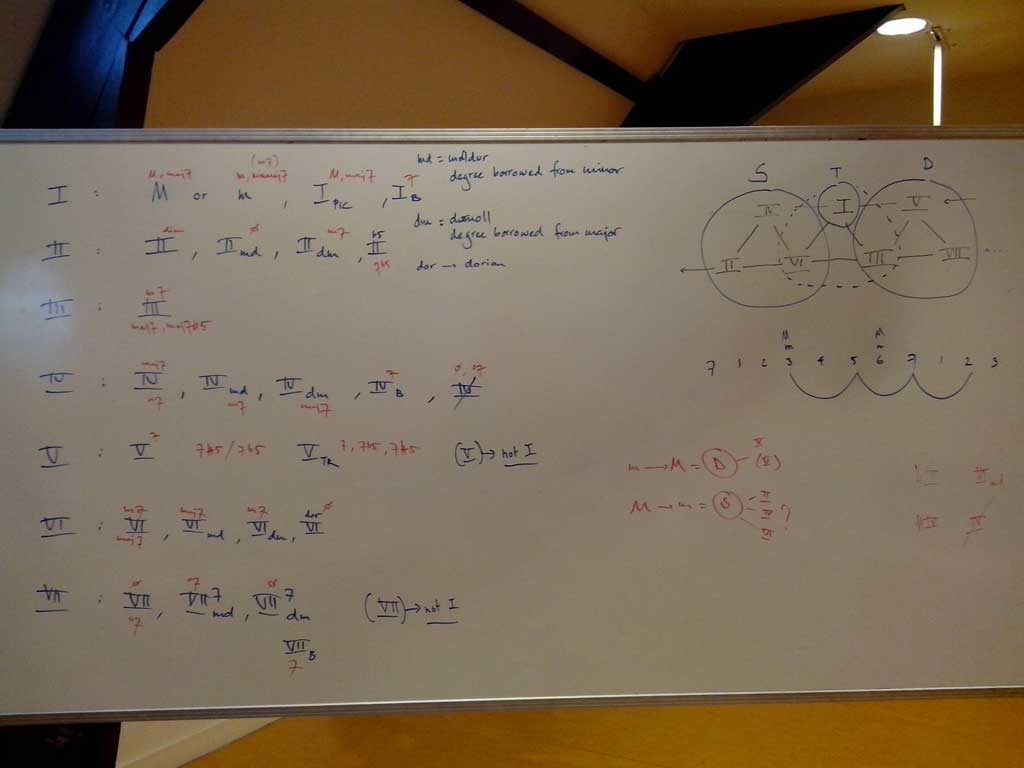 (m7)
M, maj7 m, mmaj7 M, maj7 7
I : M or m , I PIC , I B
md = moldur
degree borrowed from minor
dm = durmoll
degree borrowed from major
dor → dorian
ø m7 b5
II : II , II md , II dm , II
7b5
m7
III : III
maj7, maj7#5
maj7 7 ø, o7
IV : IV , IV md , IV dm , IV B , IV
m7 m7 maj7
V : V 7 7#5/7b5 V TR 7, 7b5, 7#5 (V) → not I
m7 maj7 m7 dor ø
VI : VI , VI md , VI dm , VI
maj7
ø o7 ø
VII : VII , VII 7 md , VII 7 dm (VII) → not I
o7
VII B
7
S T D
IV I V
II VI III VII
M M
m m
7 1 2 3 4 5 6 7 1 2 3
m → M = D (V)
M → m = S II IV VI ?